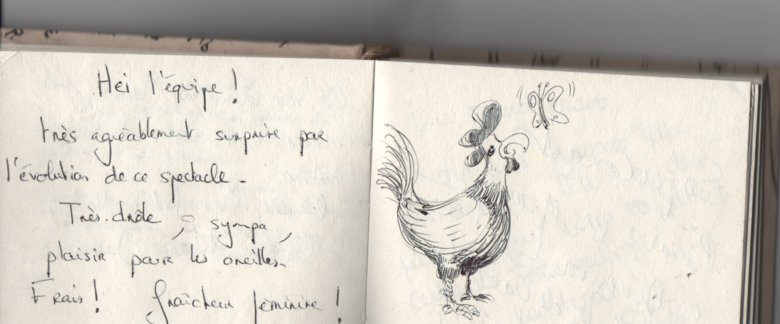 Hei l'équipe !
très agréablement surprise par
l'évolution de ce spectacle -
Très drôle, sympa,
plaisir pour les oreilles.
Frais ! fraîcheur féminine !